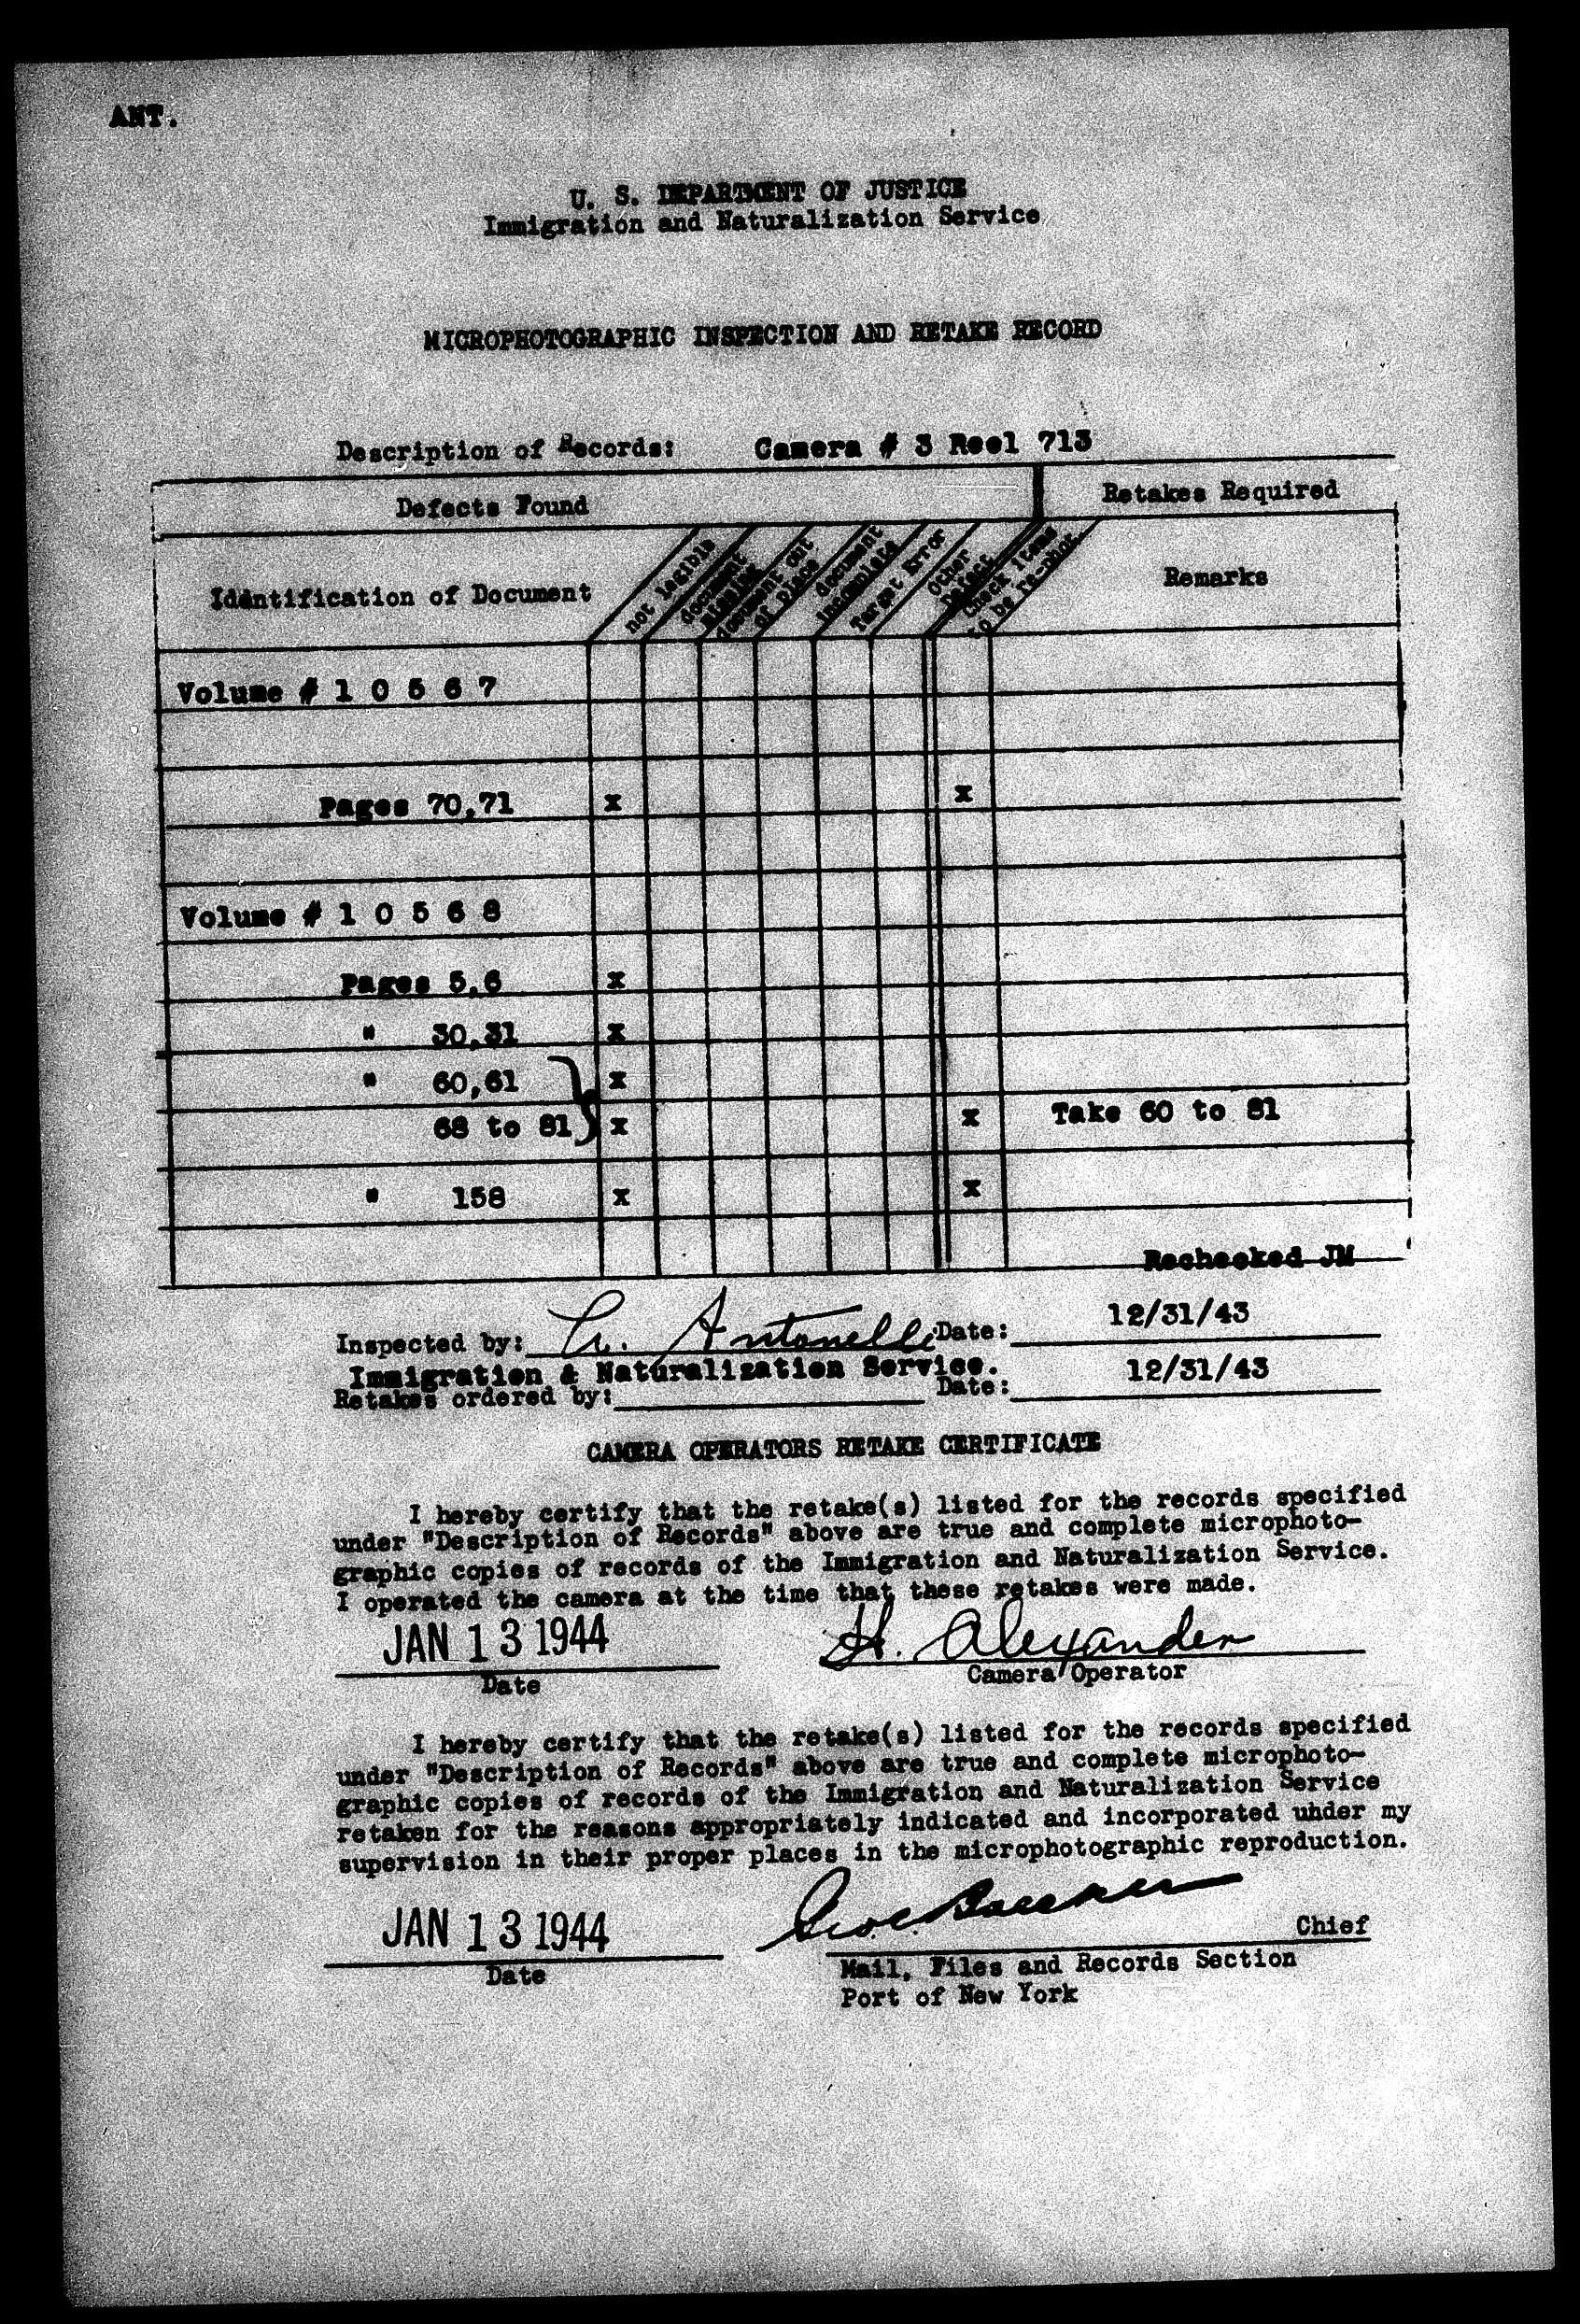 ANT.
U. S. DEPARTMENT OF JUSTICE
Immigration and Naturalization Service
MICROPHOTOGRAPHIC INSPECTION AND RETAKE RECORD
Description of Records: Camera # 3 Reel 713
Defects Found Retakes Required
Identification of Document
not legible
document missing
document out of place
document incomplete
Target Error
Other Defect
Check items to be re-phot.
Remarks
Volume # 1 0 5 6 7
Pages 70,71 x x
Volume # 1 0 5 6 8
Pages 5,6 x
" 30,31 x
" 60,61 } x
68 to 81 x x Take 60 to 81
" 158 x x
Rechecked JM
Inspected by: A. Antonelli Date: 12/31/43
Immigration & Naturalization Service.
Retakes ordered by: Date: 12/31/43
CAMERA OPERATORS RETAKE CERTIFICATE
I hereby certify that the retake(s) listed for the records specified
under "Description of Records" above are true and complete microphoto-
graphic copies of records of the Immigration and Naturalization Service.
I operated the camera at the time that these retakes were made.
JAN 13 1944 H. Alexander
Date Camera Operator
I hereby certify that the retake(s) listed for the records specified
under "Description of Records" above are true and complete microphoto-
graphic copies of records of the Immigration and Naturalization Service
retaken for the reasons appropriately indicated and incorporated under my
supervision in their proper places in the microphotographic reproduction.
JAN 13 1944 Chief
Date Mail, Files and Records Section
Port of New York